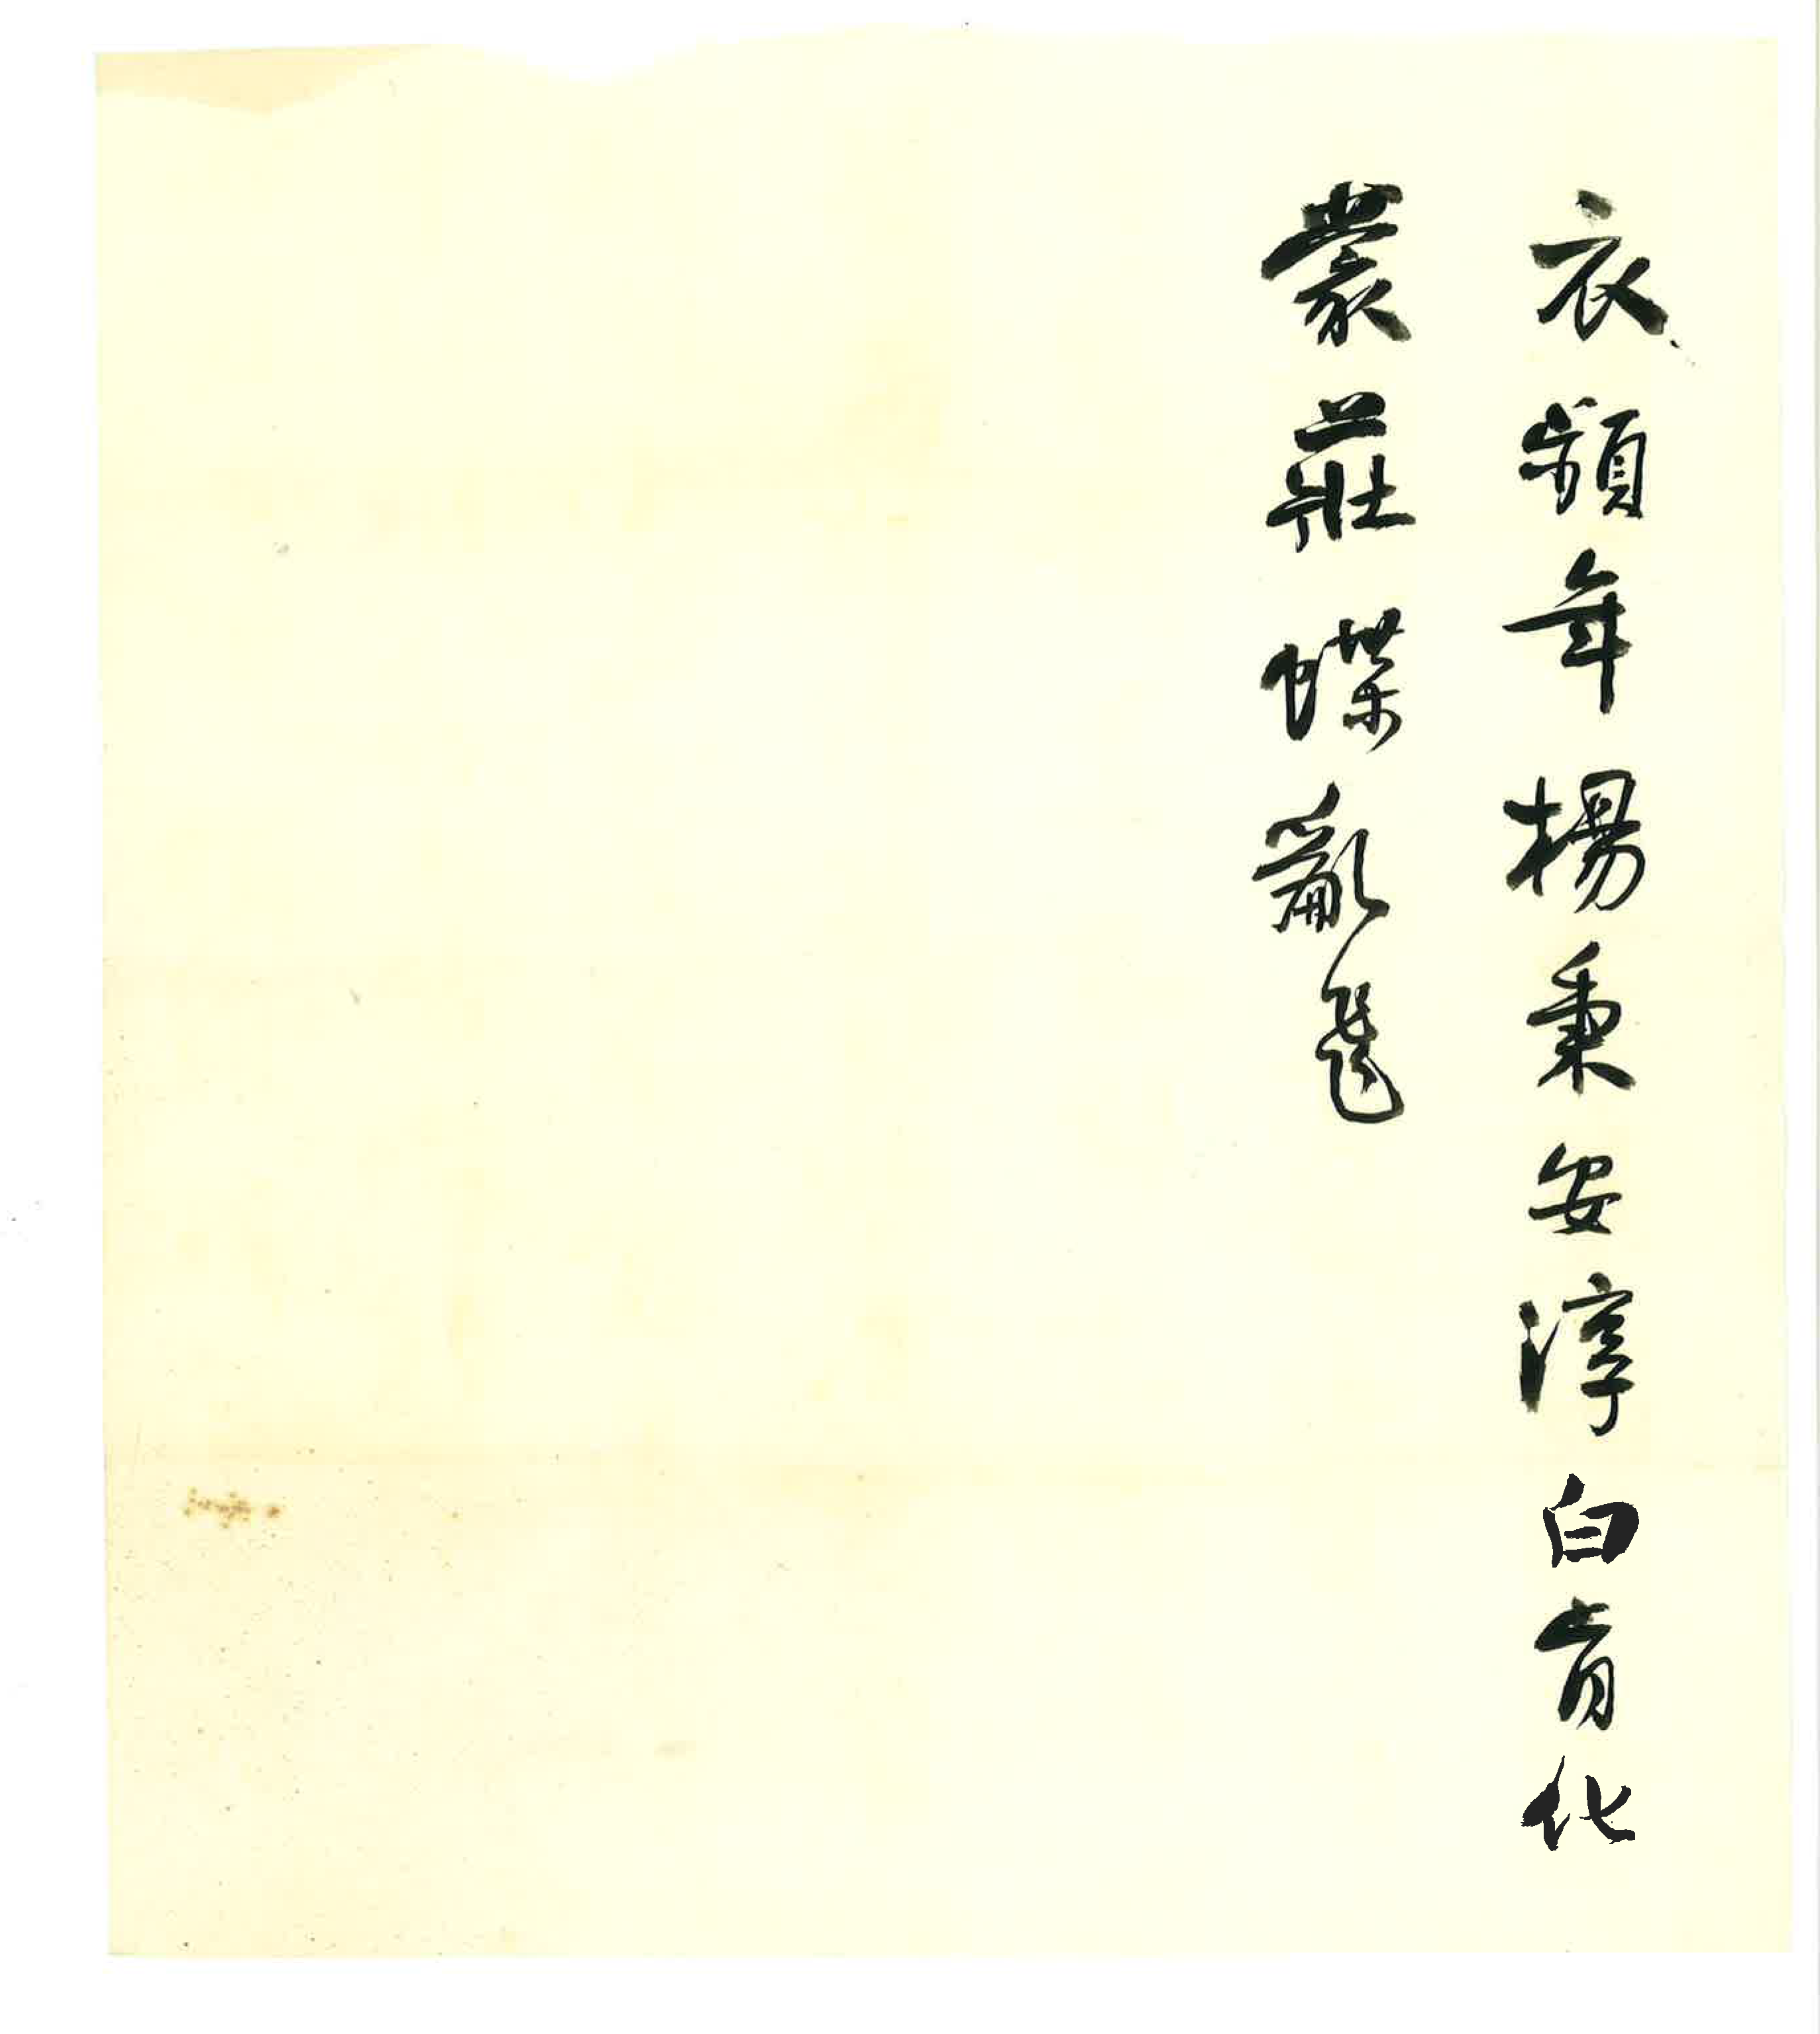 衣頻年楊秉安淳白肯化
蒙莊蝶亂飛